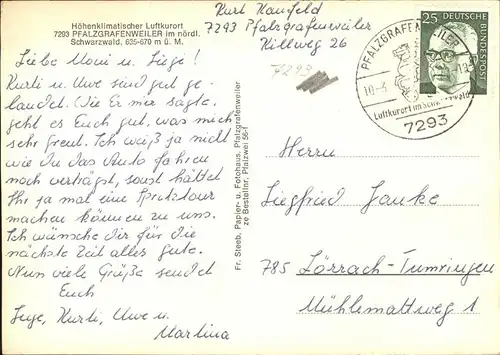 Höhenklimatischer Luftkurort
7293 PFALZGRAFENWEILER im nördl.
Schwarzwald, 635-670 m ü. M.
Liebe Moni u. Siege!
Kurti u. Uwe sind gut ge
landet. Wie Er mir sagte,
geht es Euch gut, was mich
sehr freut. Ich weiß ja nicht
wie Du das Auto fahren
noch verträgst, sonst hättet
Ihr ja mal eine Spritztour
machen können zu uns.
Ich wünsche Dir für die
nächste Zeit alles gute.
Nun viele Grüße sendet
Euch
Inge, Kurti, Uwe u.
Martina
Fr. Steeb, Papier- u. Fotohaus, Pfalzgrafenweiler
ze Bestellnr. Pfalzwei 55-1
Kurt
7293 Pfalzgrafenweiler
Killweg 26
7293
PFALZGRAFENWEILER
10.-3.
Luftkurort im Schwarzwald
7293
25
DEUTSCHE
BUNDESPOST
Herrn
Siegfried Janke
785 Lörrach-Tumringen
Mühlemattweg 1